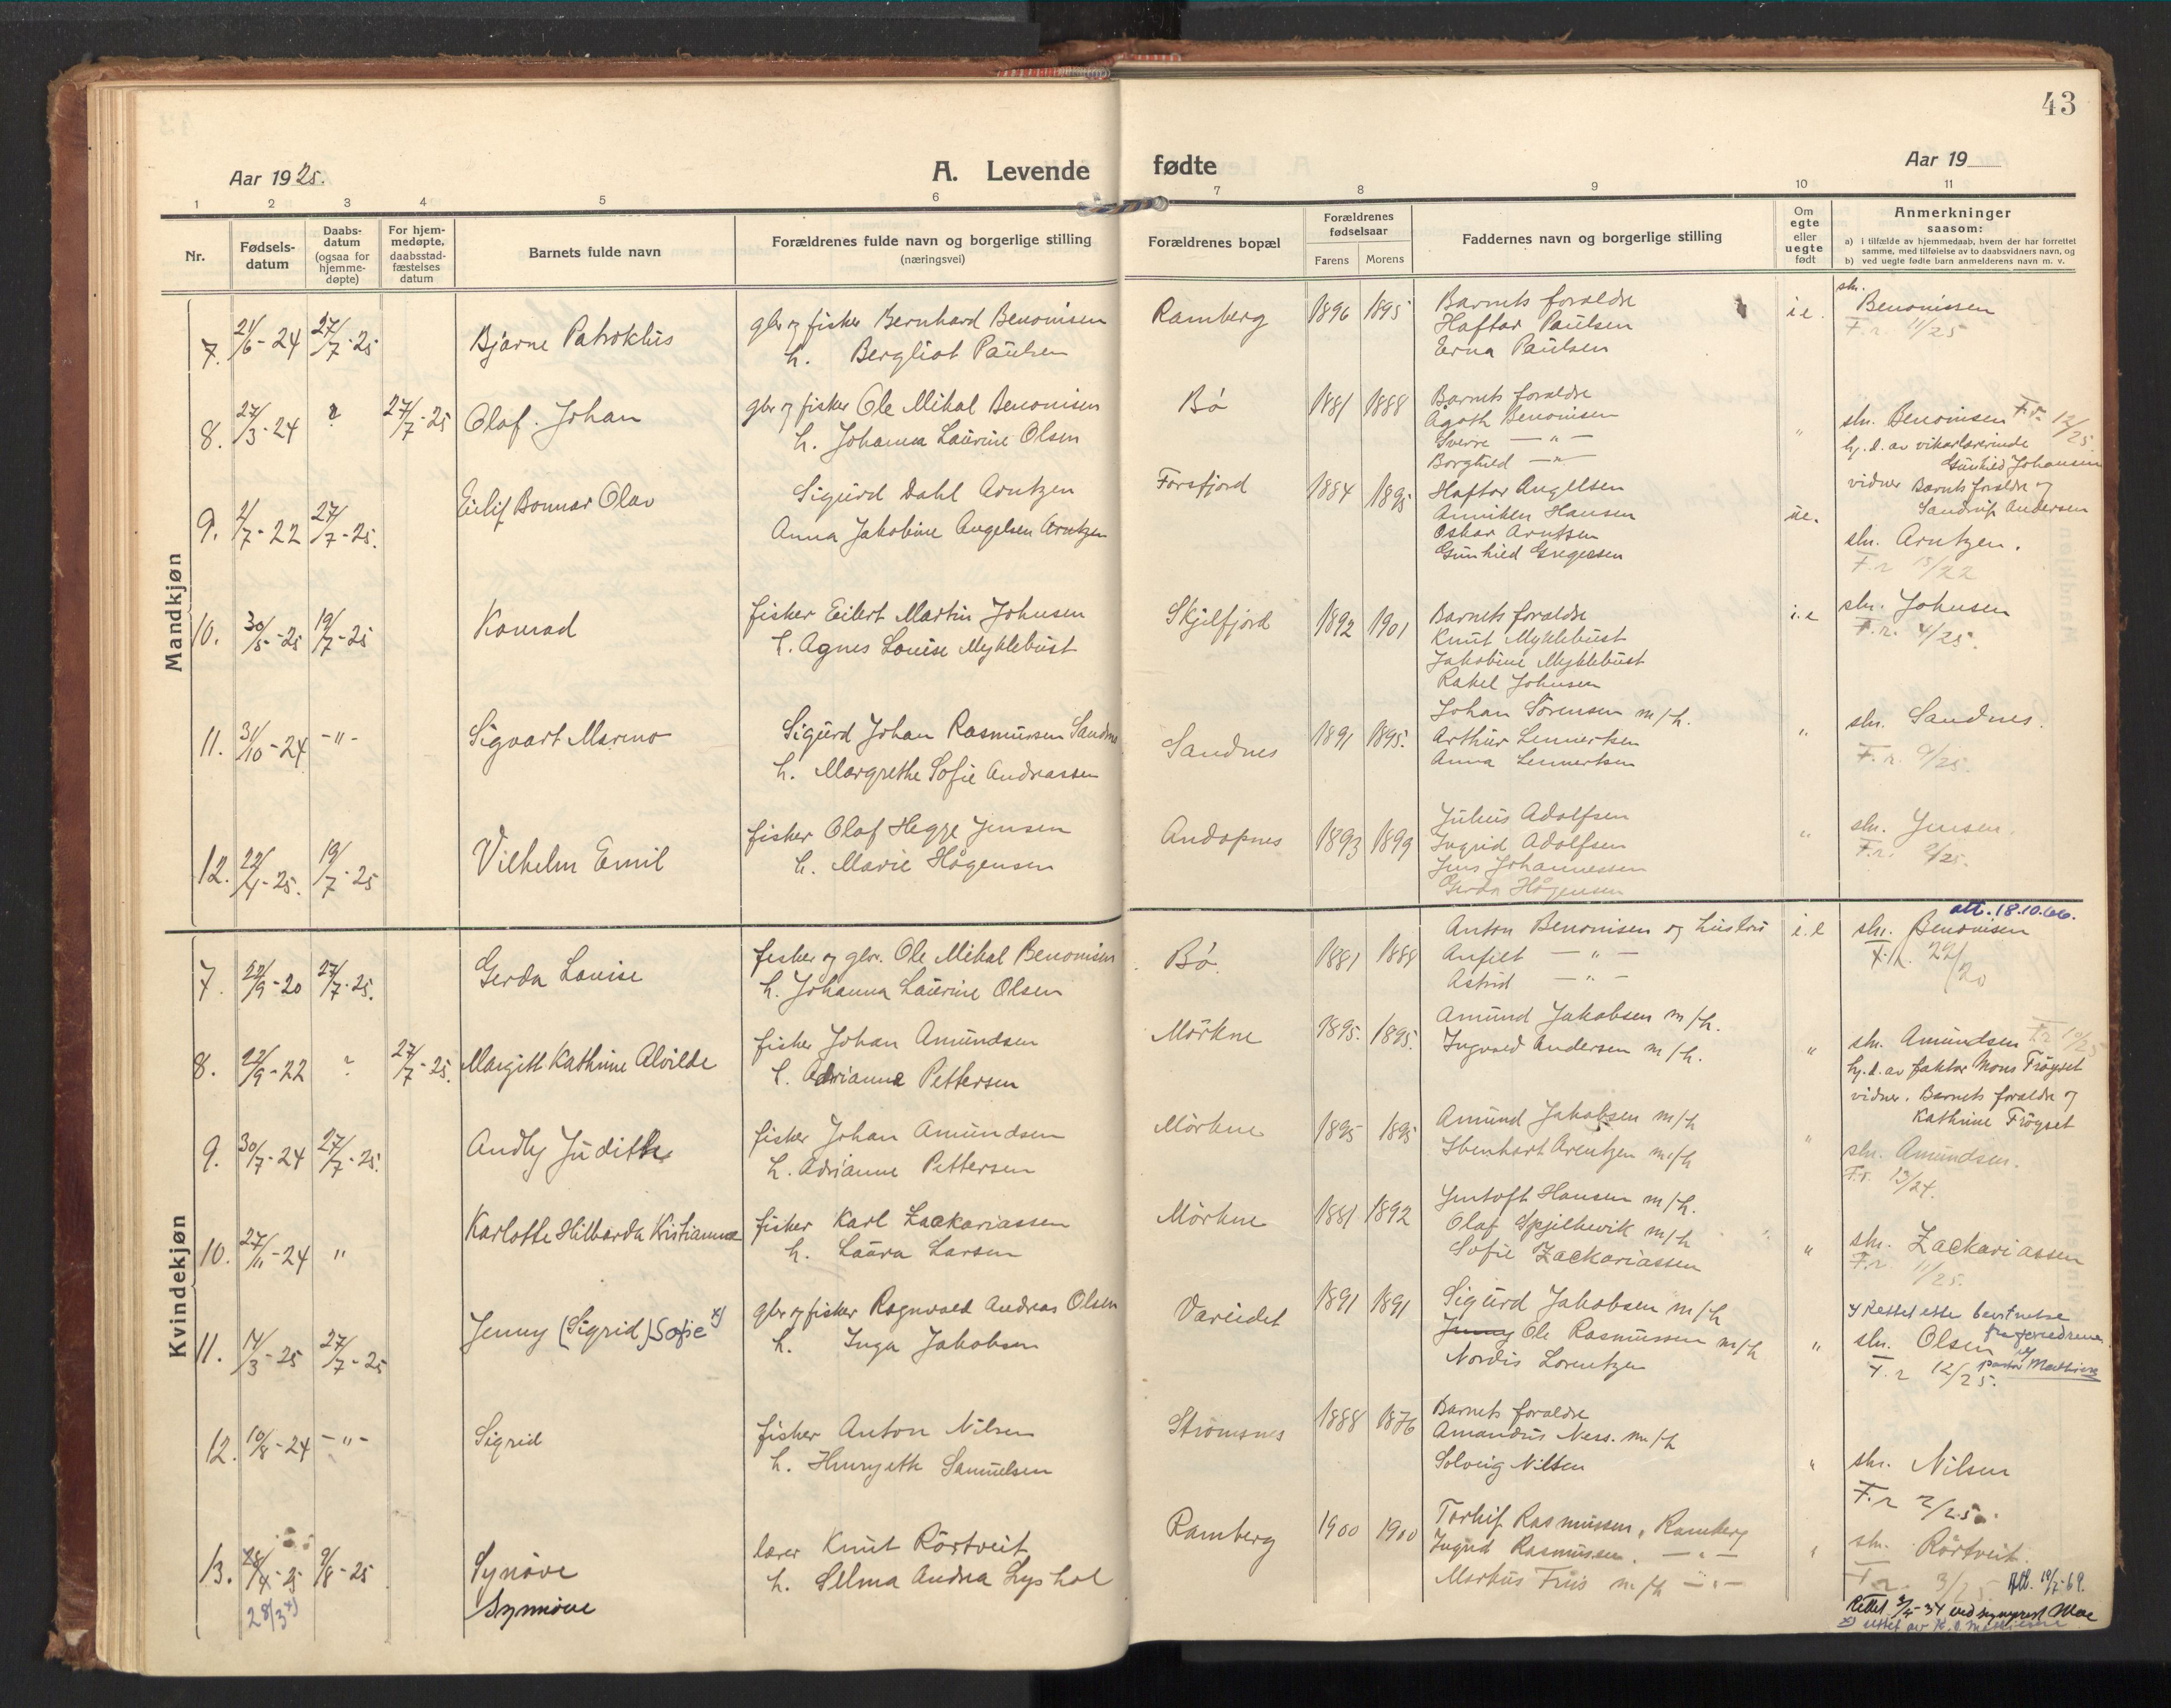 43
Aar 1925.
A. Levende fødte
Aar 19
1 2 3 4 5 6 7 8 9 10 11
Nr.
Fødsels-
datum
Daabs-
datum
(ogsaa for
hjemme-
døpte)
For hjem-
medøpte,
daabsstad-
fæstelses
datum
Barnets fulde navn
Forældrenes fulde navn og borgerlige stilling
(næringsvei)
Forældrenes bopæl
Forældrenes
fødselsaar
Farens Morens
Faddernes navn og borgerlige stilling
Om
egte
eller
uegte
født
Anmerkninger
saasom:
a) i tilfælde av hjemmedaab, hvem der har forrettet
samme, med tilføielse av to daabsvidners navn, og
b) ved uegte fødte barn anmelderens navn m. v.
Mandkjøn
7. 21/6-24 27/7-25 Bjarne Patroklus
gbr og fisker Bernhard Benonisen
h. Bergliot Paulsen
Ramberg 1896 1895
Barnets foreldre
Haftor Paulsen
Erna Paulsen
i e.
sln.
Benonissen
F. r. 11/25
8. 27/3-24 ? 27/7-25 Olaf Johan
gbr og fisker Ole Mikal Benonisen
h. Johanna Laurine Olsen
Bø 1881 1888
Barnets foreldre
Agoth Benonisen
Sverre — " —
Borghild — " —
"
sln. Benonisen F. r. 12/25
hj. d. av vikarlærerinde
Gunhild Johansen
vidner Barnets foreldre og
Sandrup Andersen
9. 2/7-22 27/7-25. Eilif Bonnar Olav
Sigurd Dahl Arntzen
Anna Jakobine Angelsen Arntzen
Forsfjord 1884 1895
Haftor Angelsen
Anniken Hansen
Oskar Arntsen
Gunhild Gregersen
ue.
sln. Arntzen.
F. r. 15/22
10. 30/5-25 19/7-25 Konrad
fisker Eilert Martin Johnsen
h. Agnes Louise Myklebust
Skjelfjord 1892 1901
Barnets foreldre
Knut Myklebust
Jakobine Myklebust
Rakel Johnsen
i. e
sln. Johnsen
F. r. 4/25.
11. 31/10-24 -"- Sigvart Marino
Sigurd Johan Rasmussen Sandnes
h. Margrethe Sofie Andreassen
Sandnes 1891 1895.
Johan Sørensen m/h.
Arthur Lennertsen
Anna Lennertsen
"
sln. Sandnes.
F. r. 9/25.
12. 22/4-25. 19/7-25 Vilhelm Emil
fisker Olaf Hegge Jensen
h. Marie Hågensen
Andopnes 1893 1899
Julius Adolfsen
Ingrid Adolfsen
Jens Johannessen
Gerda Hågensen
"
sln. Jensen.
F. r. 9/25.
Kvindekjøn
7. 22/9-20 27/7-25. Gerda Louise
fisker og gbr. Ole Mikal Benonisen
h. Johanna Laurine Olsen
Bø. 1881 1888
Anton Benonisen og hustru
Anfilt — " —
Astrid — " —
i. e
att. 18.10.66.
sln. Benonisen
F. r. 22/20
8. 22/9-22 ? 27/7-25. Margitt Kathrine Alvilde
fisker Johan Amundsen
h. Adrianne Pettersen
Mørkne 1895. 1895.
Amund Jakobsen m/h.
Ingvald Andersen m/h.
"
sln. Amundsen F. r. 10/25
hj. d. av faktor Mons Frøyset
vidner. Barnets foreldre og
Kathrine Frøyset
9. 30/7-24 27/7-25. Andly Judithe
fisker Johan Amundsen
h. Adrianne Pettersen
Mørkne 1895 1895
Amund Jakobsen m/h
Ibenhart Arentzen m/h
"
sln. Amundsen.
F. r. 13/24.
10. 27/11-24 " Karlotte Hilbarda Kristianna
fisker Karl Zackariassen
h. Laura Larsen
Mørkne 1881 1892
Jentoft Hansen m/h.
Olaf Spjelkevik m/h
Sofie Zackariassen
"
sln. Zackariassen
F. r. 11/25.
11. 14/3-25 27/7-25 Jenny (Sigrid) Sofie x)
gbr og fisker Ragnvald Andreas Olsen
h. Inga Jakobsen
Vareidet 1891 1891
Sigurd Jakobsen m/h
Jenny Ole Rasmussen m/h
Nordis Lorentzen
"
x) Rettet efter bevitnelse
fra foreldrene
sln. Olsen
v/ pastor Mathiesen
F. r 12/25.
12. 10/8-24 -"- Sigrid
fisker Anton Nilsen
h. Henryette Samuelsen
Strømsnes 1888 1876
Barnets foreldre
Amandus Ness. m/h
Solveig Nilsen
"
sln. Nilsen
F. r 2/25.
13. 28/4-25 9/8-25 Synøve
28/3 x)
Synnøve
lærer Knut Rörtveit
h. Selma Andrea Lyshol
Ramberg 1900 1900
Torleif Rasmussen, Ramberg
Ingrid Rasmussen. — " —
Markus Friis m/h — " —
"
sln. Rörtveit.
F. r. 3/25 Att. 18/7-69.
Rettet 3/5-34 ved sogneprest Moe
x) rettet av K. O. Mathiesen